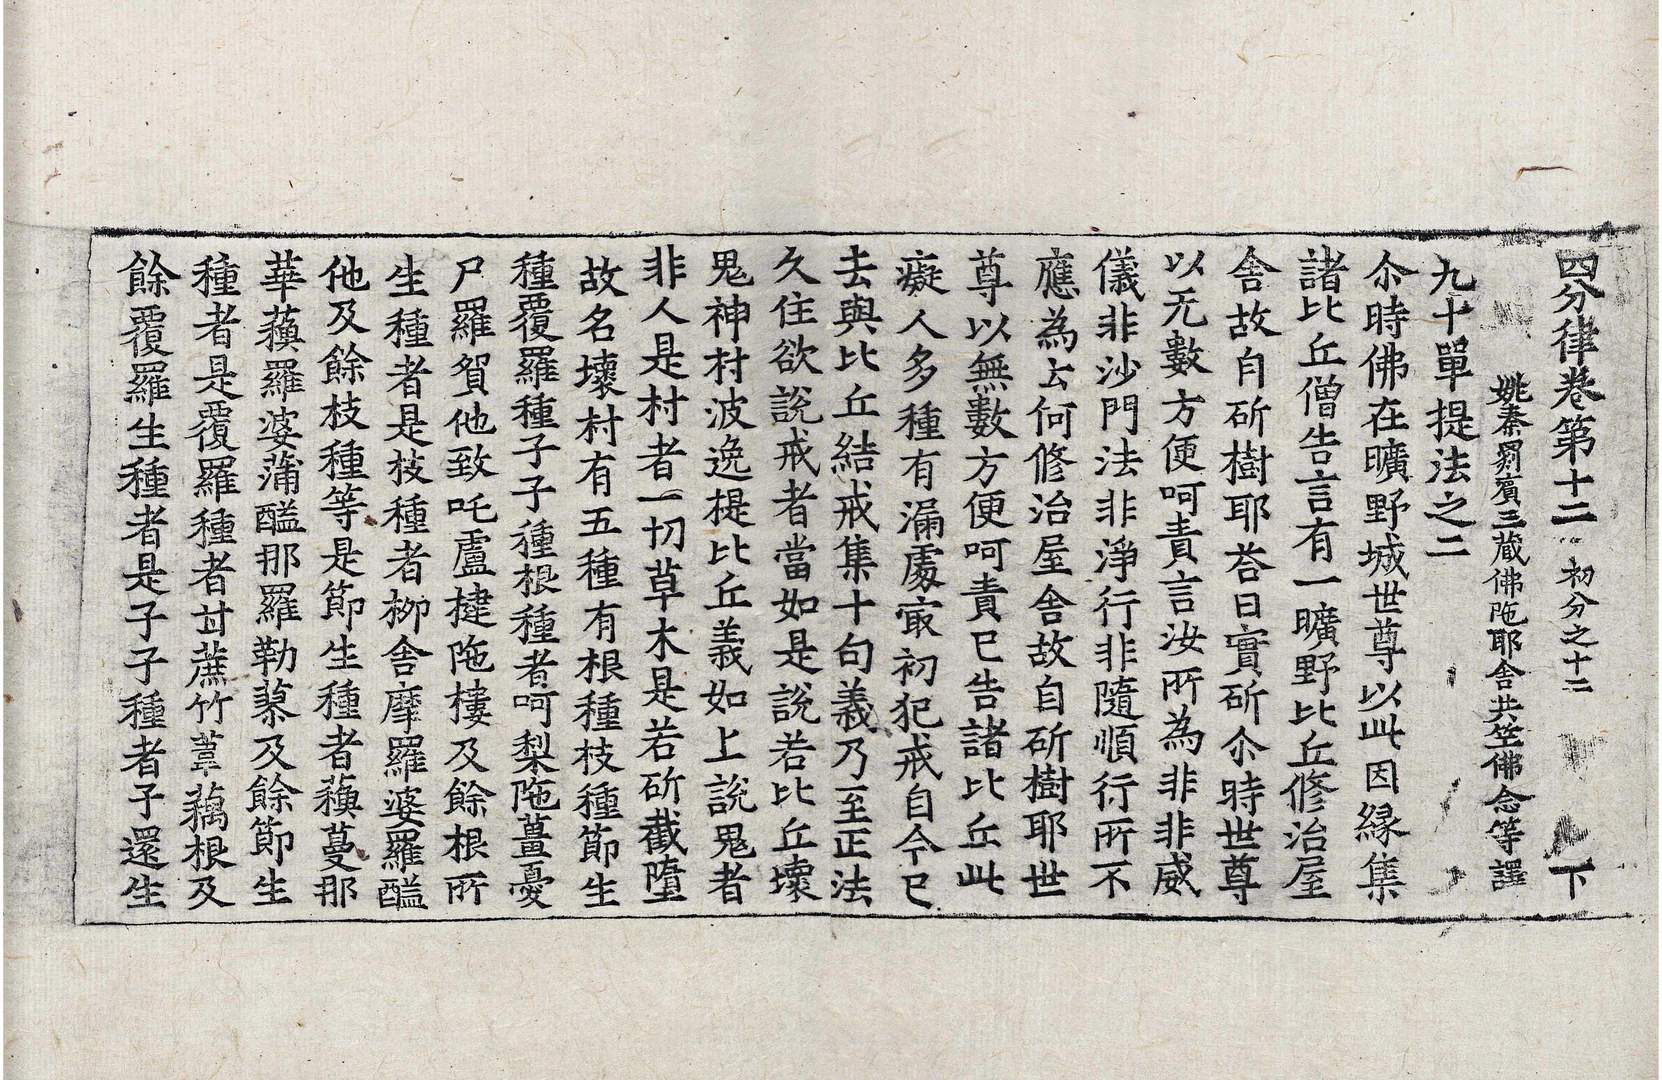 四分律卷第十二 初分之十二 下
姚秦罽賓三藏佛陁耶舍共竺佛念等譯
九十單提法之二
尒時佛在曠野城世尊以此因縁集
諸比丘僧告言有一曠野比丘修治屋
舍故自斫樹耶荅曰實斫尒時世尊
以无數方便呵責言汝所為非非威
儀非沙門法非淨行非隨順行所不
應為云何修治屋舍故自斫樹耶世
尊以無數方便呵責已告諸比丘此
癡人多種有漏處㝡初犯戒自今已
去與比丘結戒集十句義乃至正法
久住欲說戒者當如是說若比丘壞
鬼神村波逸提比丘義如上說鬼者
非人是村者一切草木是若斫截墮
故名壞村有五種有根種枝種節生
種覆羅種子子種根種者呵梨陁薑憂
尸羅賀他致吒盧揵陁樓及餘根所
生種者是枝種者柳舍摩羅婆羅醯
他及餘枝種等是節生種者蘋蔓那
華蘋羅婆蒲醯那羅勒蓼及餘節生
種者是覆羅種者甘蔗竹葦藕根及
餘覆羅生種者是子子種者子還生